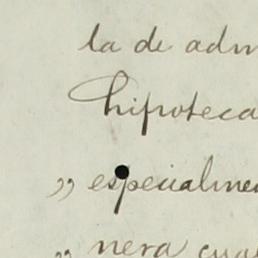 la de adm
hipoteca
" especialme
" nera cua